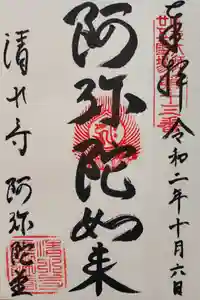 奉拝
令和二年十月六日
阿弥陀如来
清水寺
阿弥陀堂